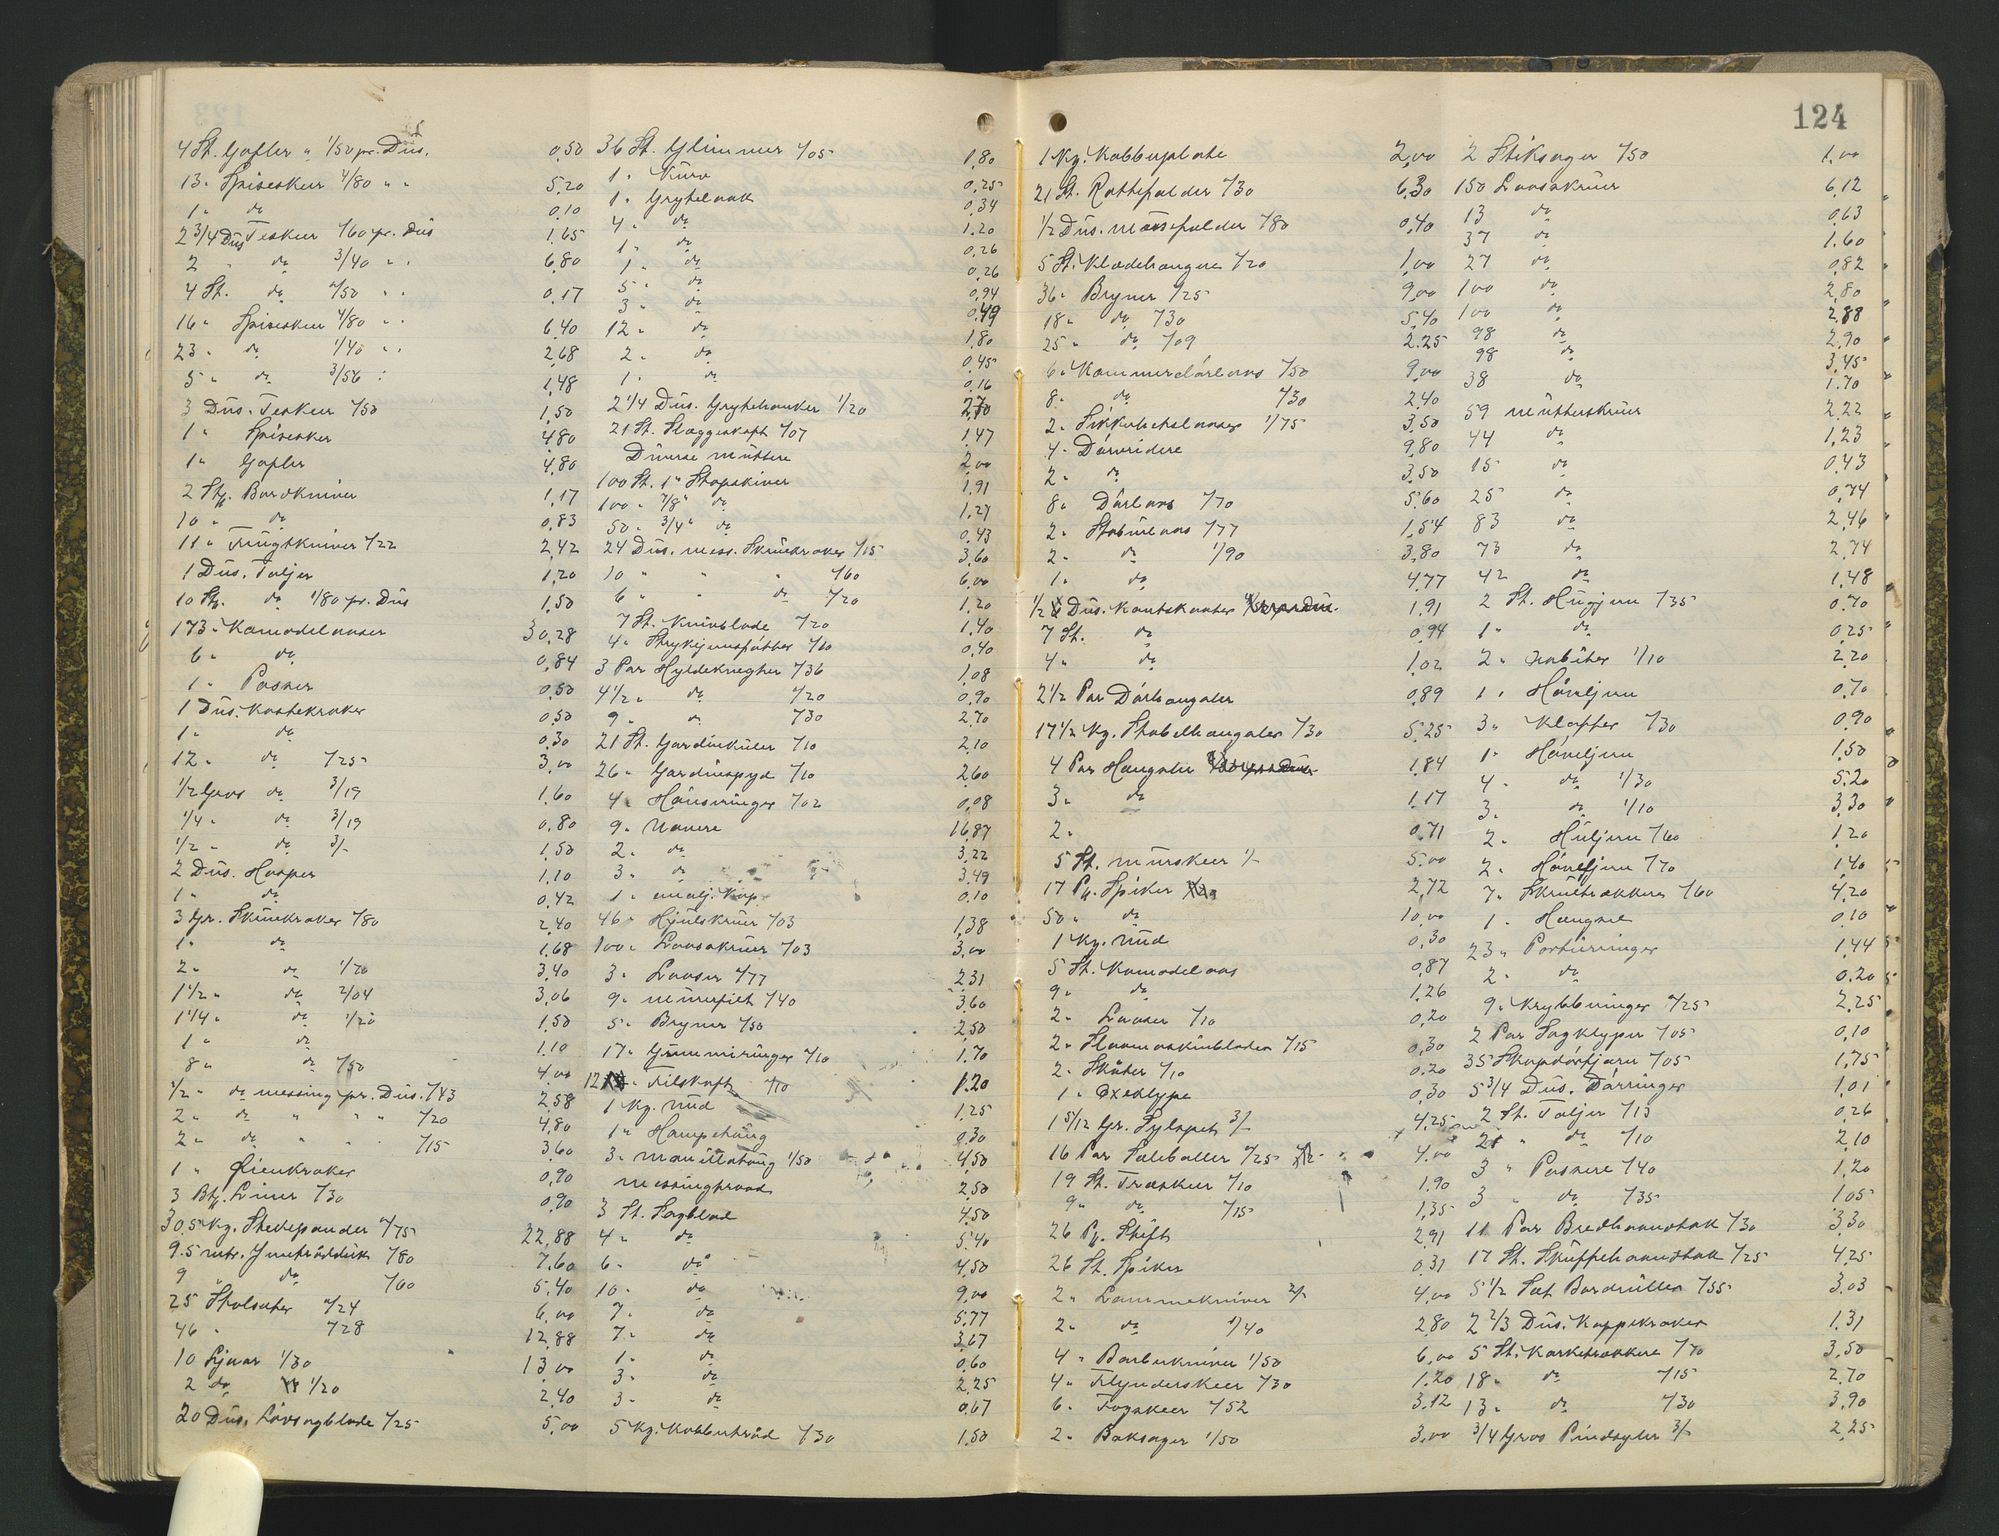 124
4 St. Gafler " 1/50 pr. Dus. 0,50
13 " Spiseskeer 4/80 " " 5,20
1 " do 0,10
2 3/4 Dus Teskeer 7/60 pr. Dus 1,65
2 " do 3/40 " " 6,80
4 St. do 7/50 " " 0,17
16 " Spiseskeer 4/80 " " 6,40
23 " do 1/40 " " 2,68
5 " do 3/56 " 1,48
3 Dus. Teskeer 7/50 1,50
1 " Spiseskeer 4,80
1 " Gafler 4,80
2 Stk. Bordkniver 1,17
10 " do 0,83
11 " Frugtkniver 7/22 2,42
1 Dus. Taljer 1,20
10 Stk. do 1/80 pr. Dus 1,50
173 " Komodelaaser 30,28
6 " do 0,84
1 " Passer 0,50
1 Dus. Kostekroker 0,50
1 " do 0,30
12 " do 7/25 3,00
1/2 Gros do 3/19 1,60
1/4 " do 3/19 0,80
1/2 " do 3/- 1,50
2 Dus. Hasper 1,10
1 " do 0,42
3 Gr. Skruekroker 7/80 2,40
1 " do 1,68
2 " do 1/70 3,40
1 1/2 " do 2/04 3,06
1 1/4 " do 1/20 1,50
1 " do 1,10
8 " do 7/50 4,00
1/2 " do messing pr. Dus. 7/43 2,58
2 " do " " " 7/20 4,80
2 " do " " " 7/15 3,60
1 " Øienkroker 0,90
3 Btk. Liner 7/30 0,90
30,5 Kg. Stekepander 7/75 22,88
9,5 mtr. Jerntraadduk 7/80 7,60
9 " do 7/60 5,40
25 Stolsæter 7/24 6,00
46 " 7/28 12,88
10 Ljaar 1/30 13,00
2 do 1/20 2,40
20 Dus. Løvsagblade 7/25 5,00
36 St. Glimmer 7/05 1,80
1 " Kurv 0,25
1 " Grytelaak 0,34
4 " do 1,20
1 " do 0,26
1 " do 0,26
5 " do 0,94
3 " do 0,49
12 " do 1,80
2 " do 0,45
1 " do 0,16
2 1/4 Dus. Grytehanker 1/20 2,70
21 St. Slæggeskaft 7/07 1,47
Diverse Muttere 2,00
100 St. 1" Stopskiver 1,91
100 " 7/8" do 1,27
50 " 3/4" do 0,43
24 Dus. mess. Skruekroker 7/15 3,60
10 " " " 7/60 6,00
6 " " do 7/20 1,20
7 St. Knivblade 7/20 1,40
4 " Strykejernsføtter 7/10 0,40
3 Par Hyldeknegter 7/36 1,08
4 1/2 " do 7/20 0,90
9 " do 7/30 2,70
21 St. Gardinkuler 7/10 2,10
26 " Gardinspyd 7/10 2,60
4 " Hønseringer 7/02 0,08
9 " Navere 16,87
2 " do 3,22
3 " do 3,49
1 " emalj. Kop 0,10
46 " Hjulskruer 7/03 1,38
100 " Laasskruer 7/03 3,00
3 " Laaser 7/77 2,31
9 " 7/40 3,60
5 " Bryner 7/50 2,50
17 " Gummiringer 7/10 1,70
12 " Filskaft 7/10 1,20
1 Kg. Nud 1,25
1 " Hampetaug 0,30
3 " Manillataug 1/50 4,50
Messingtraad 2,50
3 St. Sagblad 4,50
4 " do 5,40
6 " do 4,50
10 " do 9,00
7 " do 5,77
7 " do 3,67
1 " do 0,60
3 " do 2,25
3 " do 0,67
5 Kg. Kobbertraad 7/30 1,50
1 Kg. Kobberplate 2,00
21 St. Rottefælder 7/30 6,30
1/2 Dus. Musefælder 7/80 0,40
5 St. Klædehængere 7/20 1,00
36 " Bryner 7/25 9,00
18 " do 7/30 5,40
25 " do 7/09 2,25
6 " Kammerdørlaas 1/50 9,00
8 " do 7/30 2,40
2 " Sikkerhetslaaser 1/75 3,50
4 " Dørvridere 9,80
2 " do 3,50
8 " Dørlaas 7/70 5,60
2 " Staburlaas 7/77 1,54
2 " do 1/90 3,80
1 " do 4,77
1/2 Dus. Kantskaater 1,91
7 St. do 0,94
4 " do 1,02
2 1/2 Par Dørhængsler 0,89
17 1/2 Kg. Stabelhængsler 7/30 5,25
4 Par Hængsler 1,84
3 " do 1,17
2 " 0,71
5 St. Murskeer 1/- 5,00
17 Pk. Spiker 2,72
50 " do 10,00
1 Kg. Nud 0,30
5 St. Komodelaas 0,87
9 " do 1,26
2 " Laaser 7/10 0,20
2 " Slaamaskinblader 7/15 0,30
2 " Skaater 7/10 0,20
1 " Oxeklype 0,30
1 5/12 Gr. Sylspet 3/- 4,25
16 Par Seleballer 7/25 4,00
19 St. Træskeer 7/10 1,90
9 " do 7/15 1,35
26 Pk. Stift 2,91
26 St. Spiker 0,31
2 " Lommekniver 2/- 4,00
2 " do 1/40 2,80
4 " Barberkniver 1/50 6,00
4 " Flynderskeer 7/30 1,20
6 " Fogskeer 7/52 3,12
2 " Baksager 1/50 3,00
2 Stiksager 7/50 1,00
150 Laasskruer 6,12
13 do 0,63
37 do 1,60
27 do 0,82
100 do 2,80
100 do 2,88
98 do 2,90
98 do 3,45
38 do 1,70
59 Mutterskruer 2,22
44 do 1,23
15 do 0,43
25 do 0,74
83 do 2,46
73 do 2,74
42 do 1,48
2 St. Hugjern 7/35 0,70
1 " do 0,25
2 " Avbiter 1/10 2,20
1 " Høveljern 0,70
3 " Klafter 7/30 0,90
1 " Høveljern 1,50
4 " do 1/30 5,20
3 " do 1/10 3,30
2 " Huljern 7/60 1,20
2 " Høveljern 7/70 1,40
7 " Skruetrækkere 7/60 4,20
1 " Hængsel 0,10
23 " Portørringer 1,44
2 " do 0,20
9 " Krybberinger 7/25 2,25
2 Par Sagklyper 7/05 0,10
35 Skapdørfjærer 7/05 1,75
5 3/4 Dus. Dørringer 1,01
2 St. Taljer 7/13 0,26
21 " do 7/10 2,10
3 " Passere 7/40 1,20
3 " do 7/35 1,05
11 Par Bredhaandtak 7/30 3,30
17 St. Skuffehaandtak 7/25 4,25
5 1/2 Sæt Bordruller 7/55 3,03
2 2/3 Dus. Koppekroker 1,31
5 St. Korketrækkere 7/70 3,50
18 " do 7/15 2,70
13 " do 7/30 3,90
3/4 Gros Pindsyler 3/- 2,25